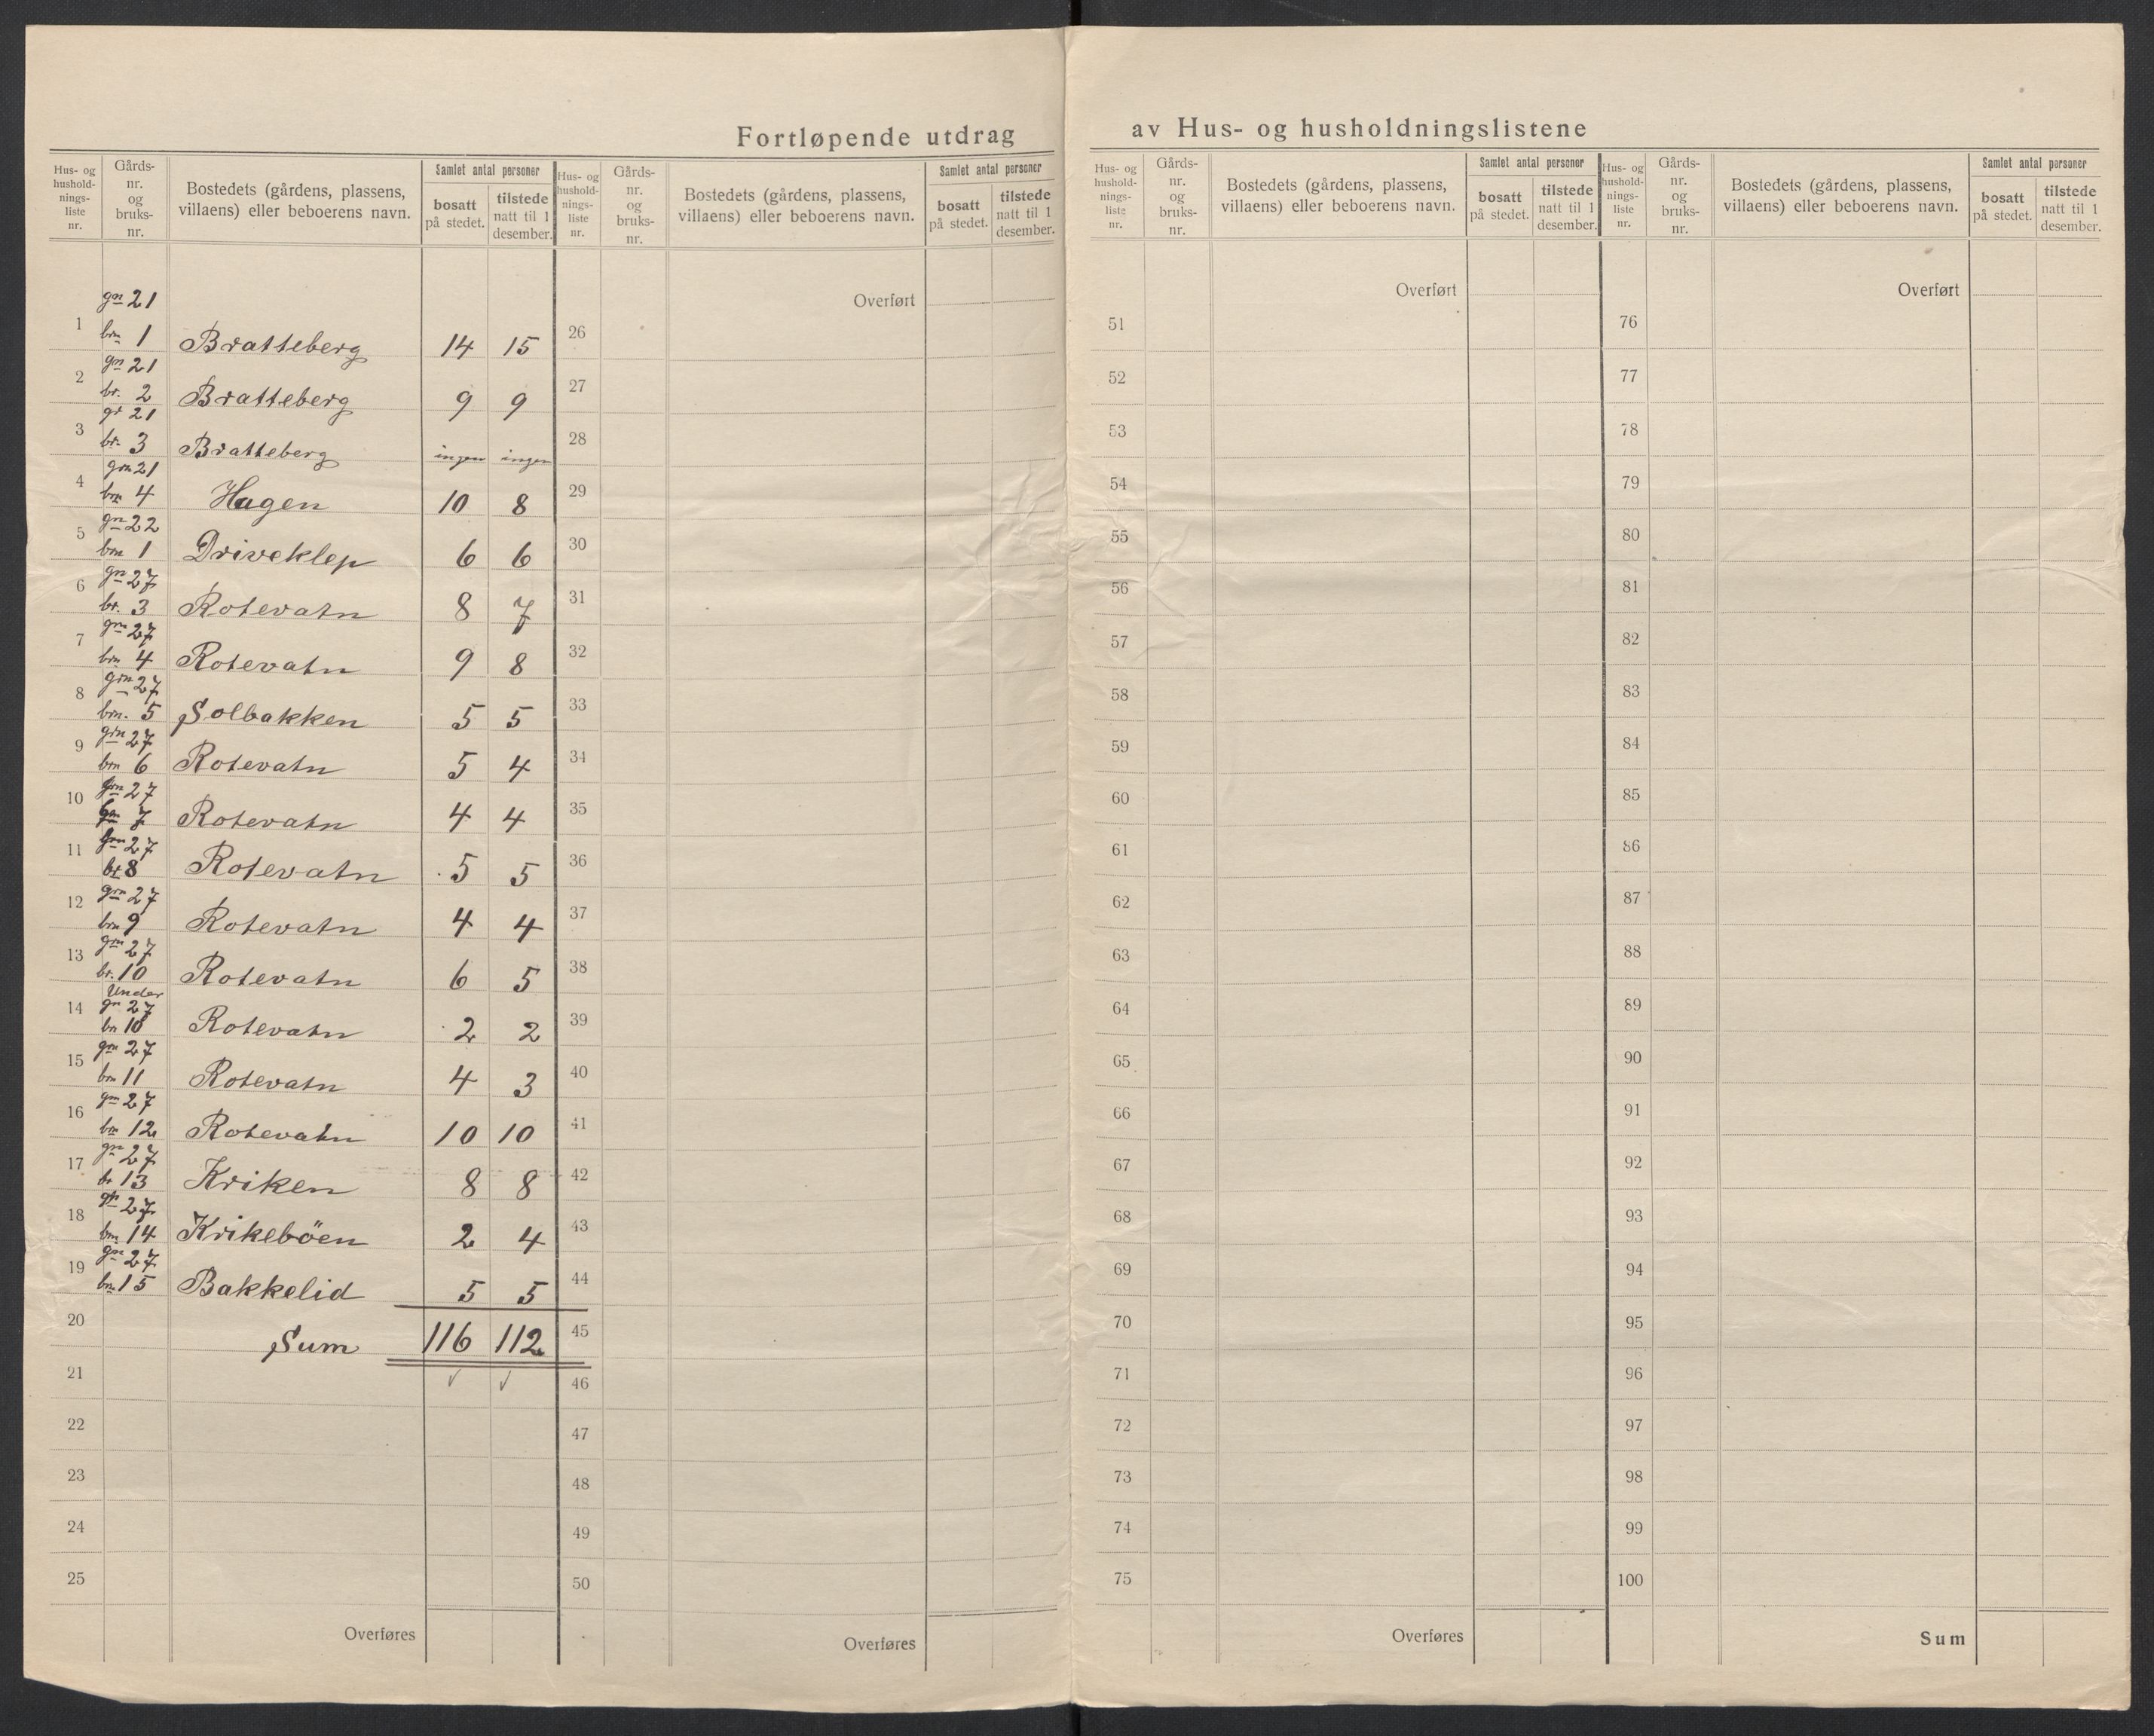 Fortløpende utdrag av Hus- og husholdningslistene
Hus- og husholdningsliste nr. Gårds-nr. og bruks-nr. Bostedets (gårdens, plassens, villaens) eller beboerens navn. Samlet antal personer bosatt på stedet. tilstede natt til 1 desember.
Hus- og husholdningsliste nr. Gårds-nr. og bruks-nr. Bostedets (gårdens, plassens, villaens) eller beboerens navn. Samlet antal personer bosatt på stedet. tilstede natt til 1 desember.
Hus- og husholdningsliste nr. Gårds-nr. og bruks-nr. Bostedets (gårdens, plassens, villaens) eller beboerens navn. Samlet antal personer bosatt på stedet. tilstede natt til 1 desember.
Hus- og husholdningsliste nr. Gårds-nr. og bruks-nr. Bostedets (gårdens, plassens, villaens) eller beboerens navn. Samlet antal personer bosatt på stedet. tilstede natt til 1 desember.
gn 21
1 brn 1 Bratteberg 14 15
gn 21
2 br. 2 Bratteberg 9 9
gr 21
3 br. 3 Bratteberg ingen ingen
grn 21
4 brn 4 Hagen 10 8
gn 22
5 brn 1 Driveklep 6 6
gn 27
6 br. 3 Rotevatn 8 7
grn 27
7 brn 4 Rotevatn 9 8
grn 27
8 brn. 5 Solbakken 5 5
grn 27
9 brn 6 Rotevatn 5 4
grn 27
10 brn 7 Rotevatn 4 4
grn 27
11 br 8 Rotevatn 5 5
grn 27
12 brn 9 Rotevatn 4 4
grn 27
13 br. 10 Rotevatn 6 5
Under
gn 27
14 bn 10 Rotevatn 2 2
grn 27
15 brn 11 Rotevatn 4 3
grn 27
16 bn 12 Rotevatn 10 10
gn 27
17 br 13 Kriken 8 8
gn 27
18 brn. 14 Krikeböen 2 4
gn 27
19 bn. 15 Bakkelid 5 5
20 Sum 116 112
21
22
23
24
25
Overføres
Overført
26
27
28
29
30
31
32
33
34
35
36
37
38
39
40
41
42
43
44
45
46
47
48
49
50
Overføres
Overført
51
52
53
54
55
56
57
58
59
60
61
62
63
64
65
66
67
68
69
70
71
72
73
74
75
Overføres
Overført
76
77
78
79
80
81
82
83
84
85
86
87
88
89
90
91
92
93
94
95
96
97
98
99
100
Sum